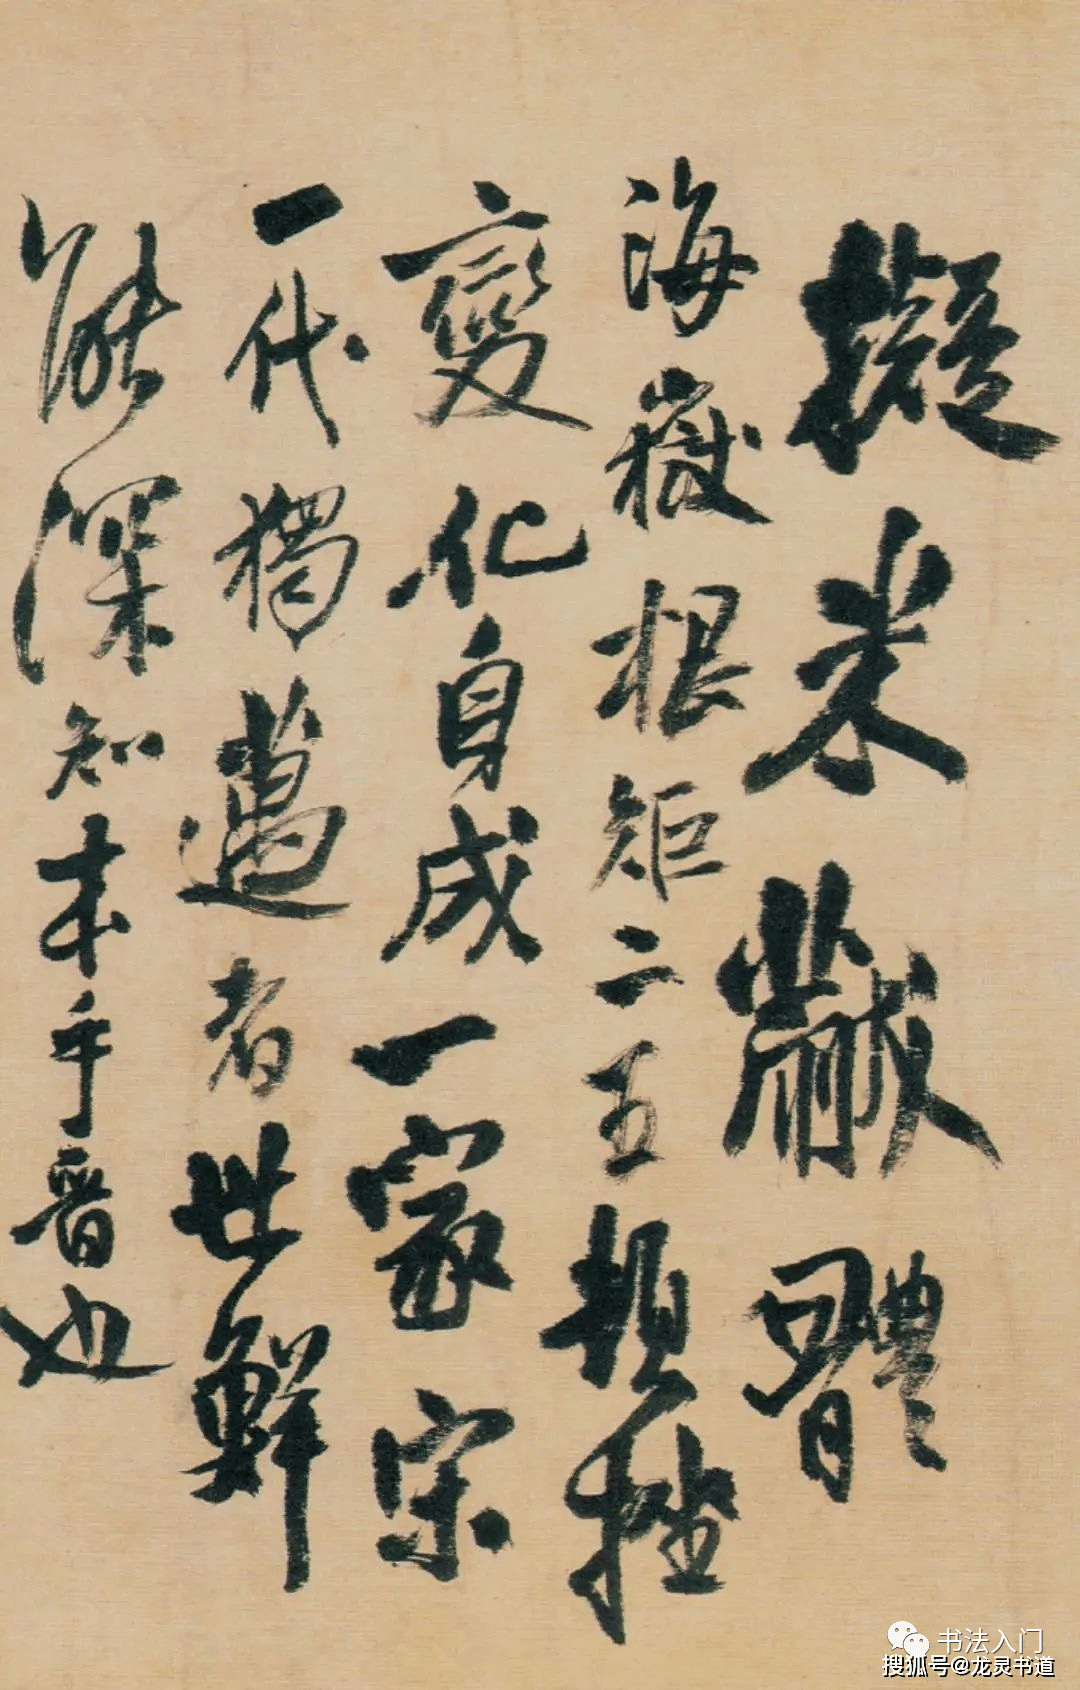 擬米黻體
海嶽根矩二王頓挫
變化自成一家宋
一代獨邁者世鮮
能深知本乎晉也
书法入门
搜狐号@龙灵书道